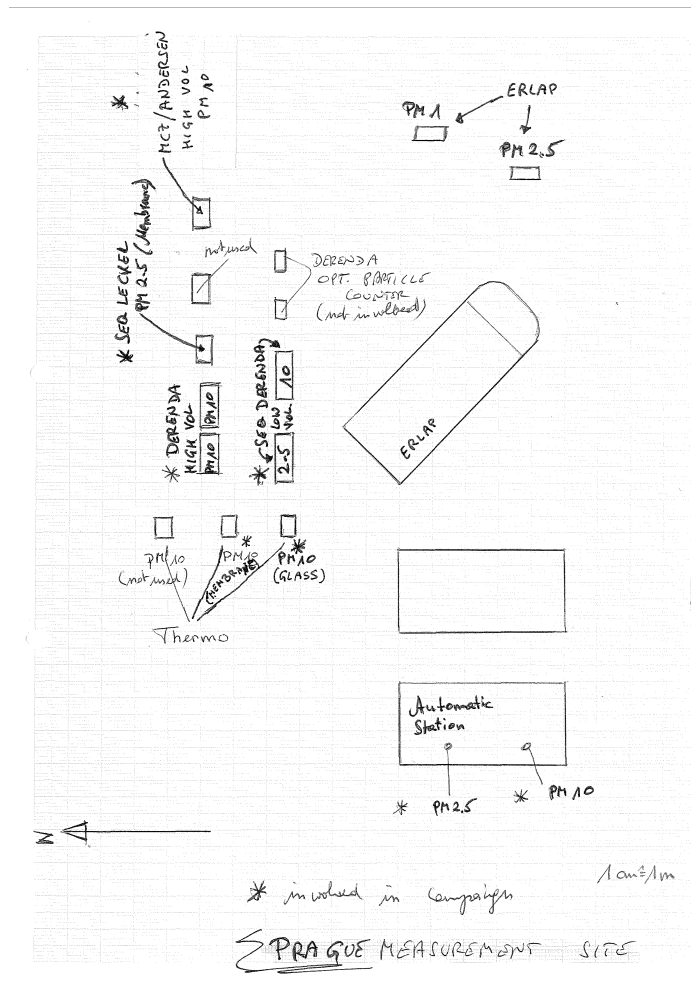 *
MCZ/ANDERSEN
HIGH VOL
PM10
ERLAP
PM1
PM2.5
* SEQ LECKEL
PM2.5 (Membrane)
not used
DERENDA
OPT. PARTICLE
COUNTER
(not involved)
* DERENDA
HIGH VOL
PM10 PM10
* SEQ DERENDA
LOW
VOL.
2.5 10
ERLAP
PM10
(not used)
PM10 *
(MEMBRANE)
*
PM10
(GLASS)
Thermo
Automatic
Station
* PM2.5
* PM10
N
1cm≙1m
* involved in campaign
PRAGUE MEASUREMENT SITE